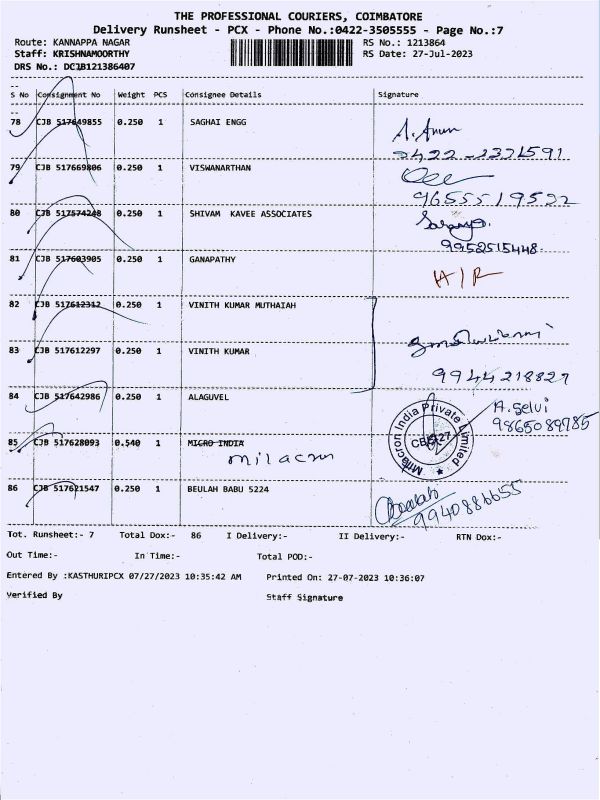 THE PROFESSIONAL COURIERS, COIMBATORE
Delivery Runsheet - PCX - Phone No.:0422-3505555 - Page No.:7
Route: KANNAPPA NAGAR RS No.: 1213864
Staff: KRISHNAMOORTHY RS Date: 27-Jul-2023
DRS No.: DCJB121386407
S No Consignment No Weight PCS Consignee Details Signature
78 CJB 517649855 0.250 1 SAGHAI ENGG
79 CJB 517669806 0.250 1 VISWANARTHAN
9655519522
80 CJB 517574248 0.250 1 SHIVAM KAVEE ASSOCIATES
9952515448
81 CJB 517603905 0.250 1 GANAPATHY H/R
82 CJB 517612312 0.250 1 VINITH KUMAR MUTHAIAH
83 CJB 517612297 0.250 1 VINITH KUMAR
9944218827
84 CJB 517642986 0.250 1 ALAGUVEL A. Selvi
9865089785
85 CJB 517628093 0.540 1 MICRO INDIA
milacron
Milacron India Private Limited
86 CJB 517621547 0.250 1 BEULAH BABU 5224 Beulah
9940886655
Tot. Runsheet:- 7 Total Dox:- 86 I Delivery:- II Delivery:- RTN Dox:-
Out Time:- In Time:- Total POD:-
Entered By :KASTHURIPCX 07/27/2023 10:35:42 AM Printed On: 27-07-2023 10:36:07
Verified By Staff Signature